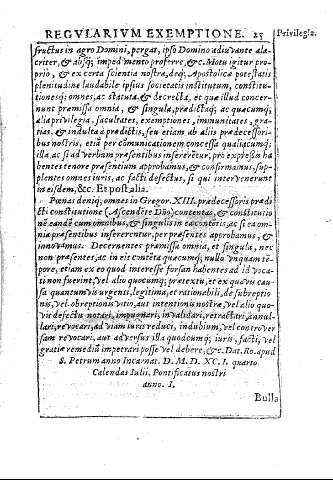 REGVLARIVM EXEMPTIONE. 25
Privilegia.
fructus in agro Domini, pergat, ipso Domino adiuvante ala-
criter, & absq; impedimento proferre, &c. Motu igitur pro-
prio, & ex certa scientia nostra, deq; Apostolicæ potestatis
plenitudine laudabile ipsius societatis institutum, constitu-
tionesq; omnes, ac statuta & decreta, et quæ illud concer-
nunt præmissa omnia, & singula, prædictaq; ac quæcumq;
alia privilegia, facultates, exemptiones, immunitates, gra-
tias, & indulta prædictis, seu etiam ab aliis prædecessori-
bus nostris, etiā per cōmunicationem concessa qualiacumq;
illa, ac si ad verbum præsentibus insererētur, pro expressis ha-
bentes tenore præsentium approbamus, & confirmamus, sup-
plentes omnes iuris, ac facti defectus, si qui intervenerunt
in eisdem, &c. Et post alia.
Pœnas deniq; omnes in Gregor. XIII. prædecessoris prædi-
cti constitutione (Ascendēte Dño) contentas, & constitutio
nē eandē cum omnibus, & singulis in ea cōtētis, ac si ea om-
nia præsentibus insererentur, per præsentes approbamus, &
innovamus. Decernentes præmissa omnia, et singula, nec
non præsentes, ac in eis contēta quæcumq; nullo vnquam tē-
pore, etiam ex eo quod interesse forsan habentes ad id voca-
ti non fuerint, vel alio quocumq; prætextu, et ex quavis cau-
sa quantumvis urgenti, legitima, et rationabili, de subreptio
nis, vel obreptionis vitio, aut intentionis nostræ, vel alio quo-
vis defectu notari, impugnari, invalidari, retractari, annul-
lari, revocari, ad viam iuris reduci, in dubium, vel controver
siam revocari, aut adversus illa quodcumq; iuris, facti, vel
gratiæ remediū impetrari posse vel debere, &c. Dat. Ro. apud
S. Petrum anno Incarnat. D. M. D. XC. I. quarto
Calendas Iulii. Pontificatus nostri
anno. I.
Bulla